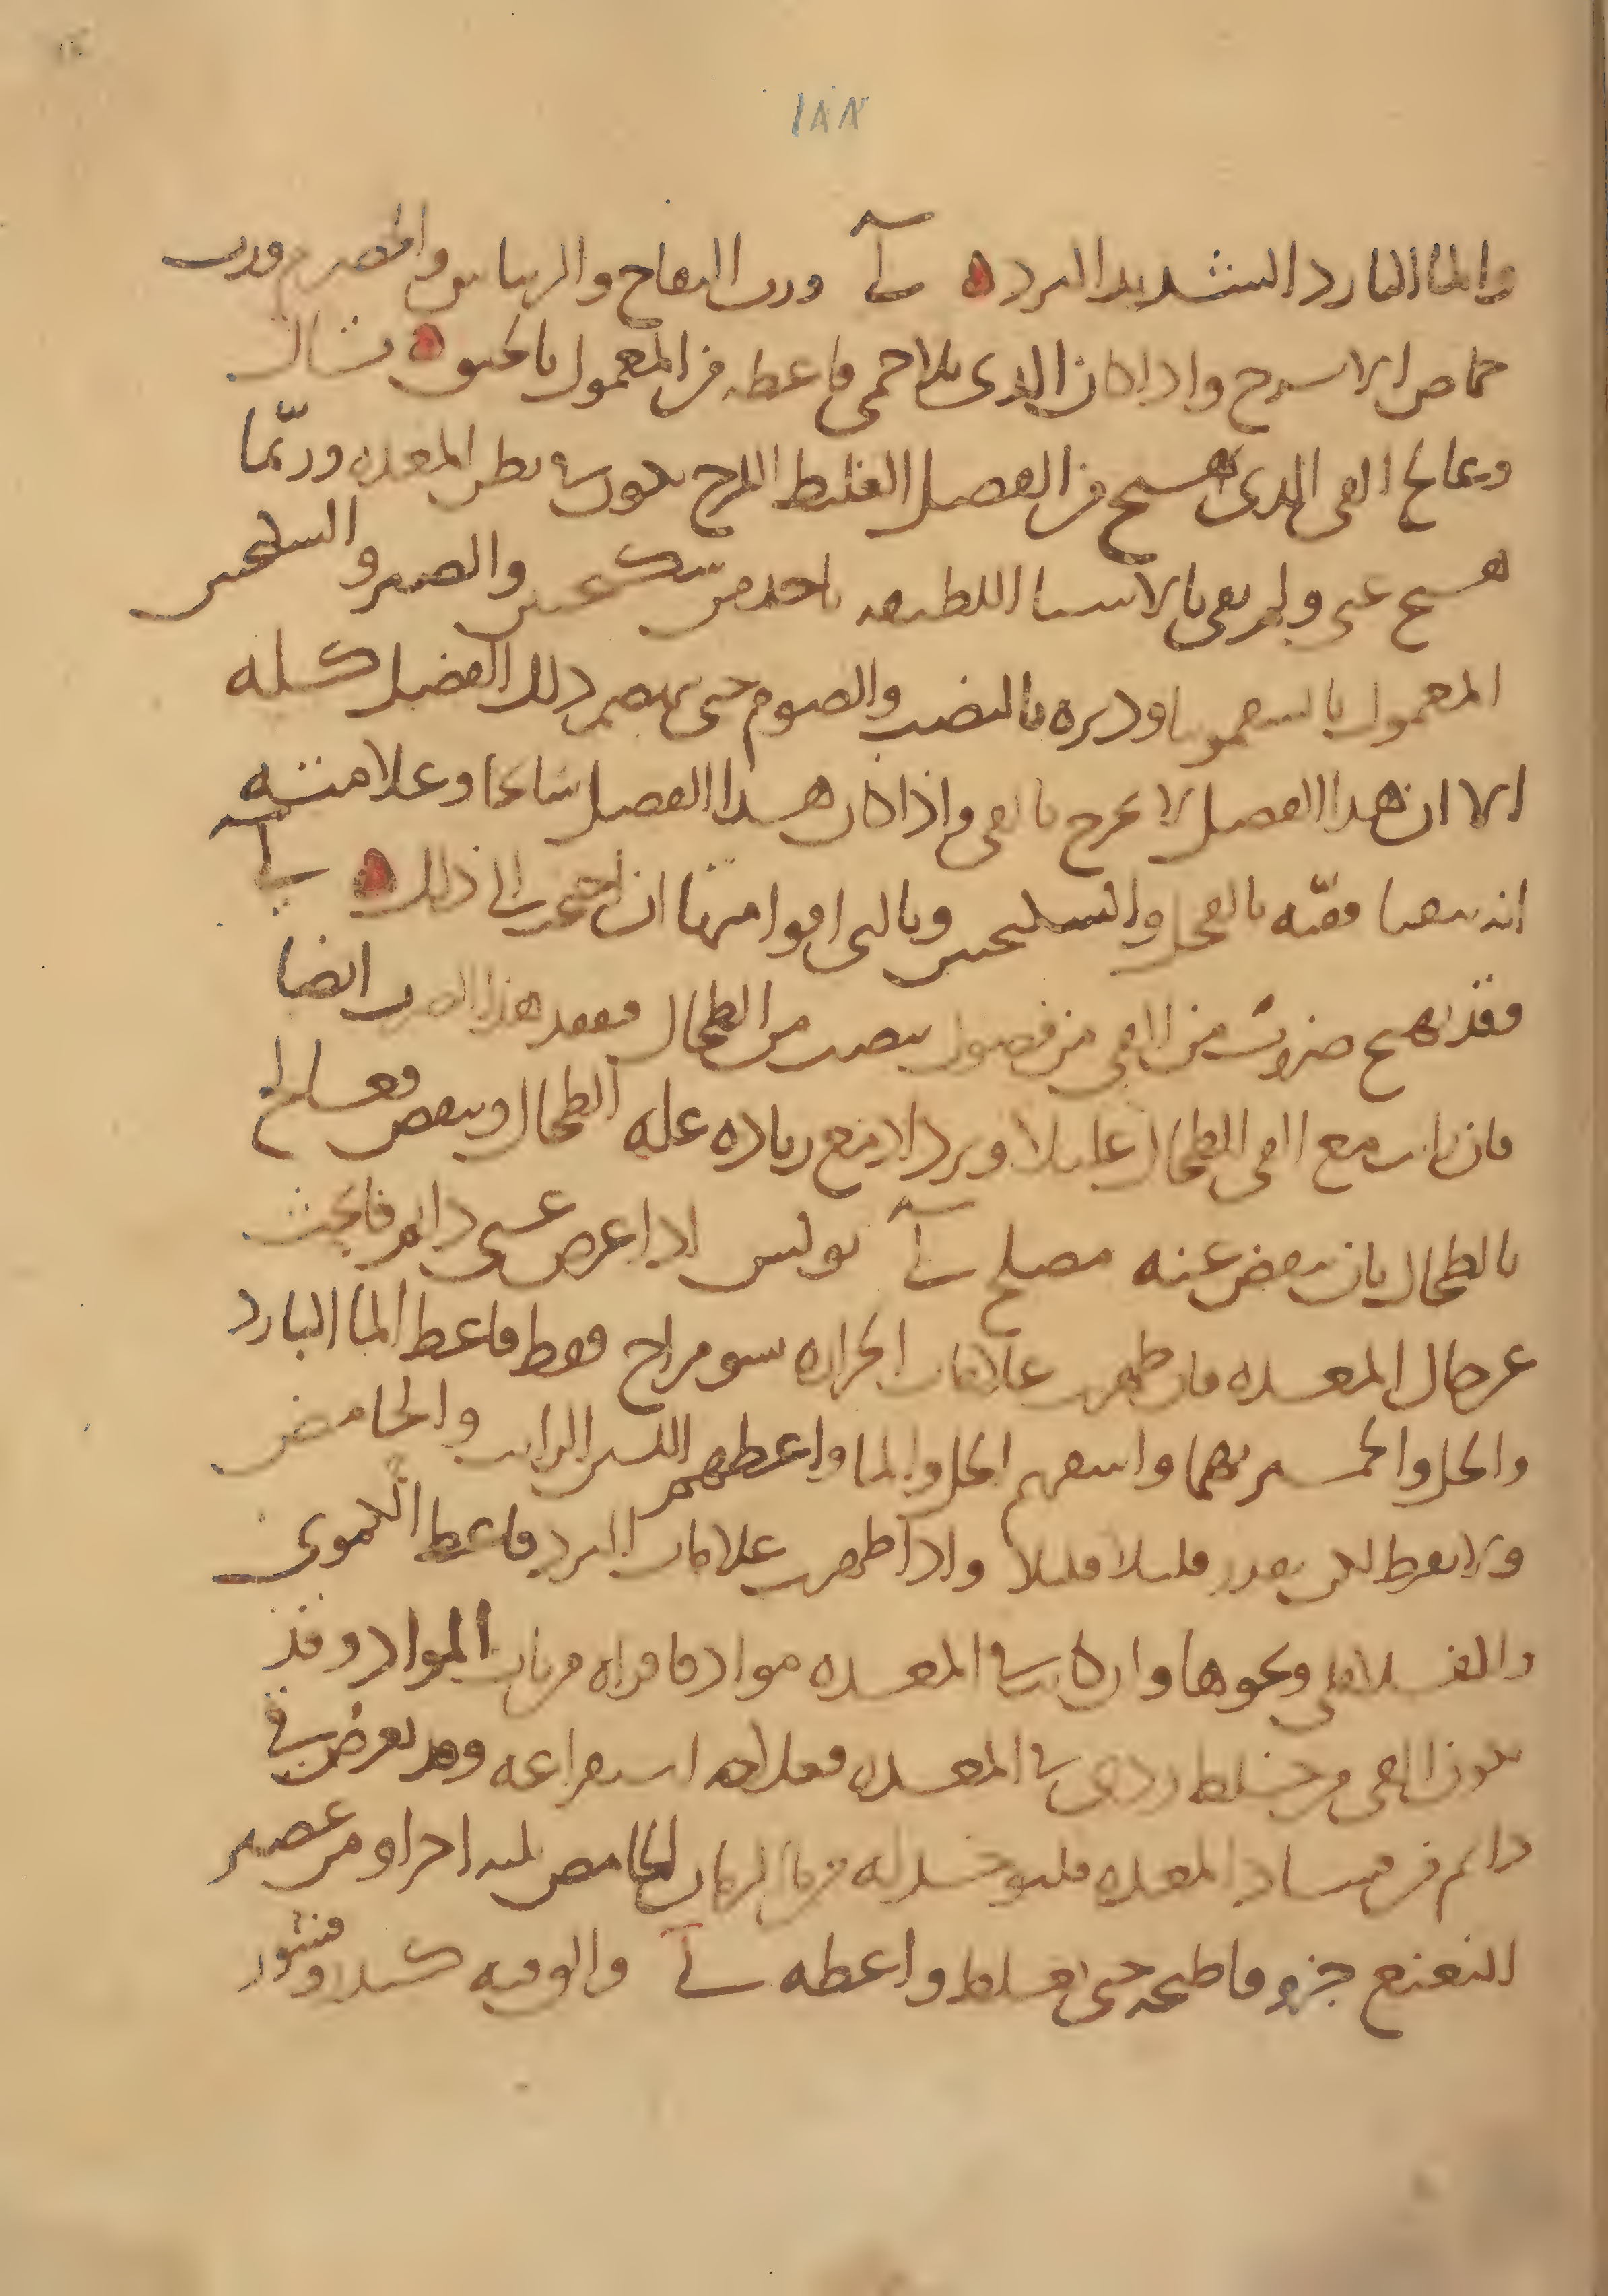 ١٨٨
والما البارد الشديد البرد ه لى ورب التفاح والريباس والحصرم ورب
حماض الاترج واذا كان الذى بلا حمى فاعطه من المعمول بالحبق ه
ويعالج القى الذى يهيج من الفضل الغليظ اللزج يكون فى بطن المعده وربّما
هيج غثى ولم يقى بالاشيا اللطيفه ياخذ من سكنجبين والصبر والسكنجبين
المعمول بالسقمونيا ودبره بالنصب والصوم حتى ينهضم ذلك الفضل كله
الا ان هذا الفضل لا يخرج بالقى واذا كان هذا الفضل سابحا وعلامته
انه يتقيا فقيّه بالفجل والسكنجبين وبالتى اقوا منها ان احتجت الى ذلك ه لى
فقد يهيج ضروب من القى من فضول ينصب من الطحال فتفقد هذا ايضا
فان رايت مع القى الطحال عليلا ويزداد مع زياده عله الطحال وينقص فعالج
بالطحال بان ينفض عنه مصلح لى بولس اذا عرض غثى دايم فابحث
عن حال المعده فان ظهرت علامات الحراره سو مزاج فقط فاعط الما البارد
والخل والخمر بهما واسقهم الخل والما واعطهم اللبن الرايب والحامض
ولا يفرط لكن بقدر قليلا قليلا واذا ظهرت علامات البرد فاعط الكمونى
والفلافلى ونحوها وان كان فى المعده مواد فاقراه من باب المواد وقد
يكون القى من خلط ردى فى المعده فعلاجه استفراغه وقد يعرض قى
دايم من فساد المعده فليوخذ له من ما الرمان الحامض ثلثه اجزا ومن عصير
النعنع جزو فاطبخه حتى يغلظ واعطه لى والاوقيه كندر وقشور